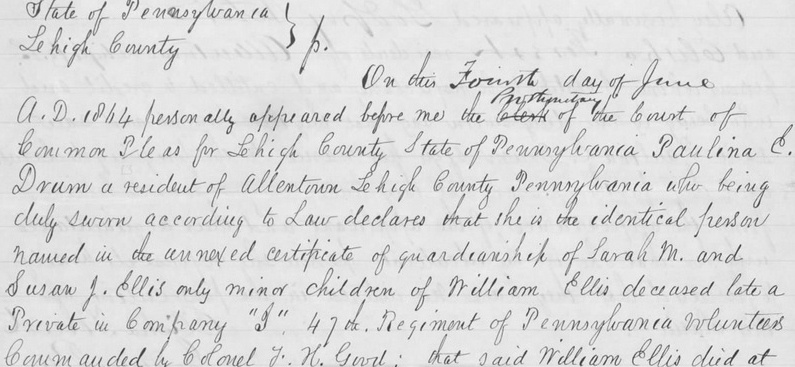 State of Pennsylvania
Lehigh County } ss.
On this Fourth day of June
A.D. 1864 personally appeared before me the Prothonotary of the Court of
Common Pleas for Lehigh County State of Pennsylvania Paulina E.
Drum a resident of Allentown Lehigh County Pennsylvania who being
duly sworn according to Law declares that she is the identical person
named in the annexed certificate of guardianship of Sarah M. and
Susan J. Ellis only minor children of William Ellis deceased late a
Private in Company "I". 47th. Regiment of Pennsylvania Volunteers
Commanded by Colonel T. H. Good; that said William Ellis died at